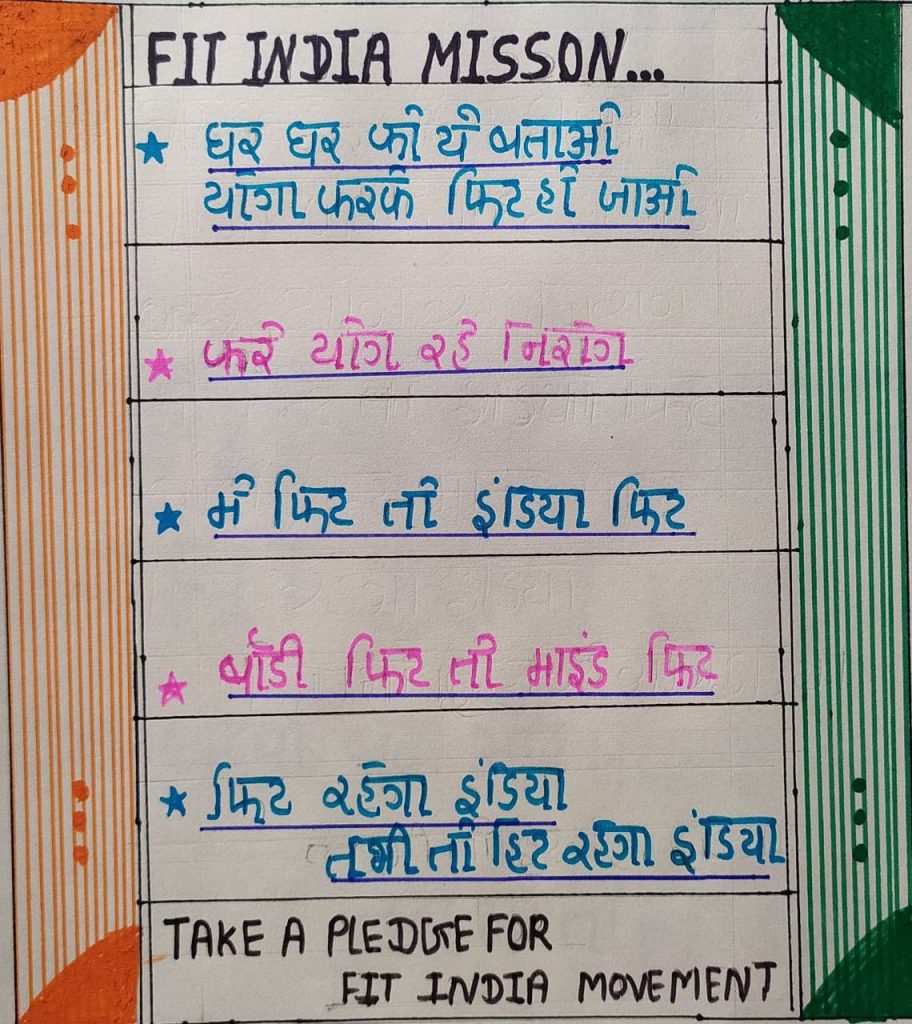 FIT INDIA MISSON...
घर घर को ये बताओ
योगा करके फिट हो जाओ
करे योग रहे निरोग
में फिट तो इंडिया फिट
बॉडी फिट तो माइंड फिट
फिट रहेगा इंडिया
तभी तो हिट रहेगा इंडिया
TAKE A PLEDGE FOR
FIT INDIA MOVEMENT